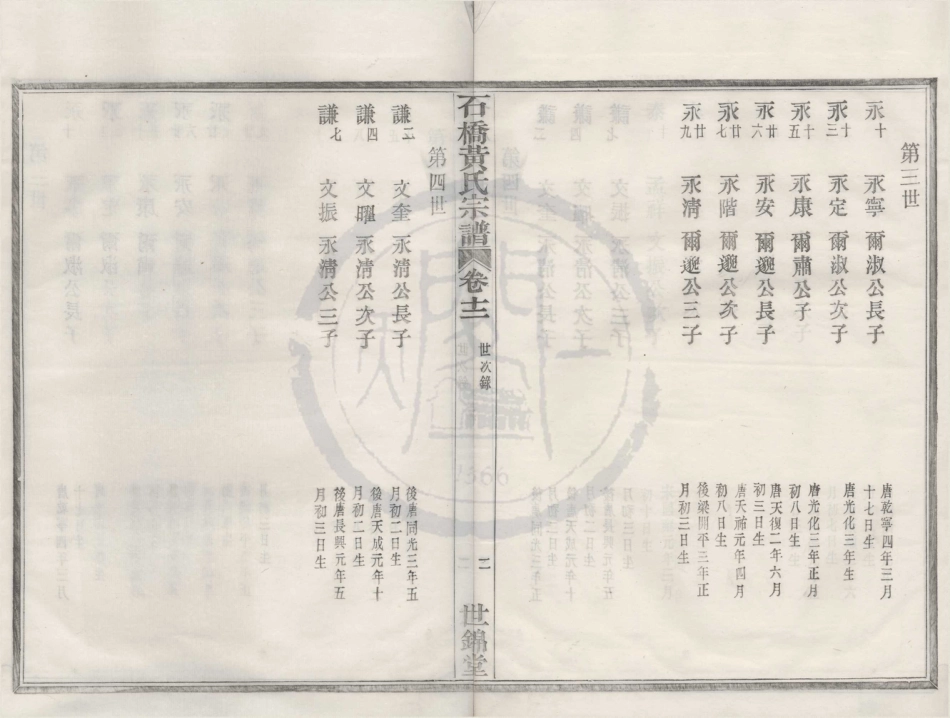 第三世
永十 永寧 爾淑公長子 唐乾寧四年三月十七日生
永十三 永定 爾淑公次子 唐光化三年生
永十五 永康 爾肅公子 唐光化三年正月初八日生
永廿六 永安 爾邈公長子 唐天復二年六月初三日生
永廿七 永階 爾邈公次子 唐天祐元年四月初八日生
永廿九 永清 爾邈公三子 後梁開平三年正月初三日生
石橋黃氏宗譜 卷十二 世次錄 二 世錦堂
第四世
謙二 文奎 永清公長子 後唐同光三年五月初二日生
謙四 文曜 永清公次子 後唐天成元年十月初二日生
謙七 文振 永清公三子 後唐長興元年五月初三日生